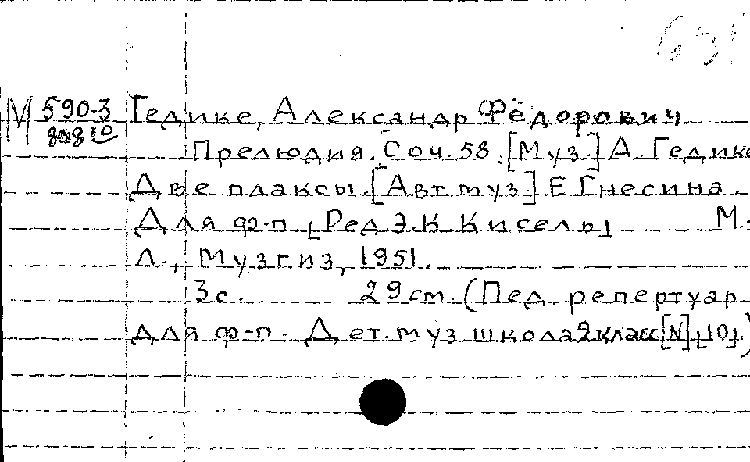 631
М 590-3 Гедике, Александр Фёдорович
Прелюдия. Соч. 58. [Муз.] А. Гедике
Две плаксы. [Авт. муз.] Е. Гнесина
Для ф-п. [Ред. Э. К. Кисель] М.-
Л., Музгиз, 1951.
3 с. 29 см. (Пед. репертуар
для ф-п. Дет. муз. школа 2 класс [N] [10].)